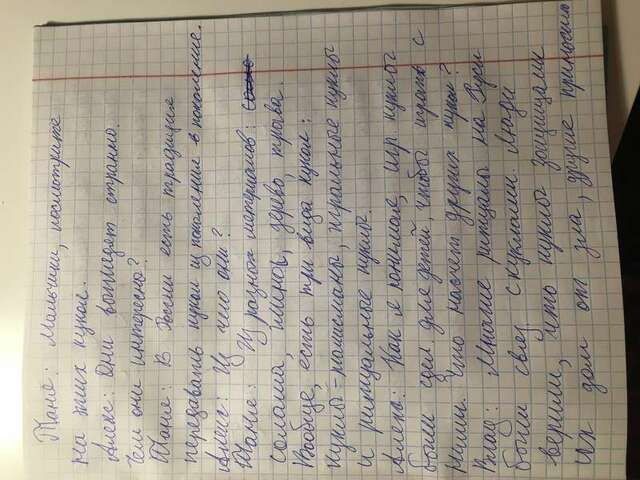 Таня: Мальчики, посмотрите
на этих кукол.
Алекс: Они выглядят странно.
Чем они интересно?
Таня: В России есть традиция
передавать кукол из поколения в поколение.
Алекс: Из чего они?
Таня: Из разных материалов:
солома, глина, дерево, трава.
Вообще, есть три вида кукол:
куклы-талисманы, игральные куклы
и ритуальные куклы.
Алекс: Как я понимаю, игр. куклы
были сдел. для детей, чтобы играть с
ними. Что насчет других кукол?
Влад: Многие ритуалы на Руси
были связ. с куклами. Люди
верили, что куклы защищали
их дом от зла, другие приносили